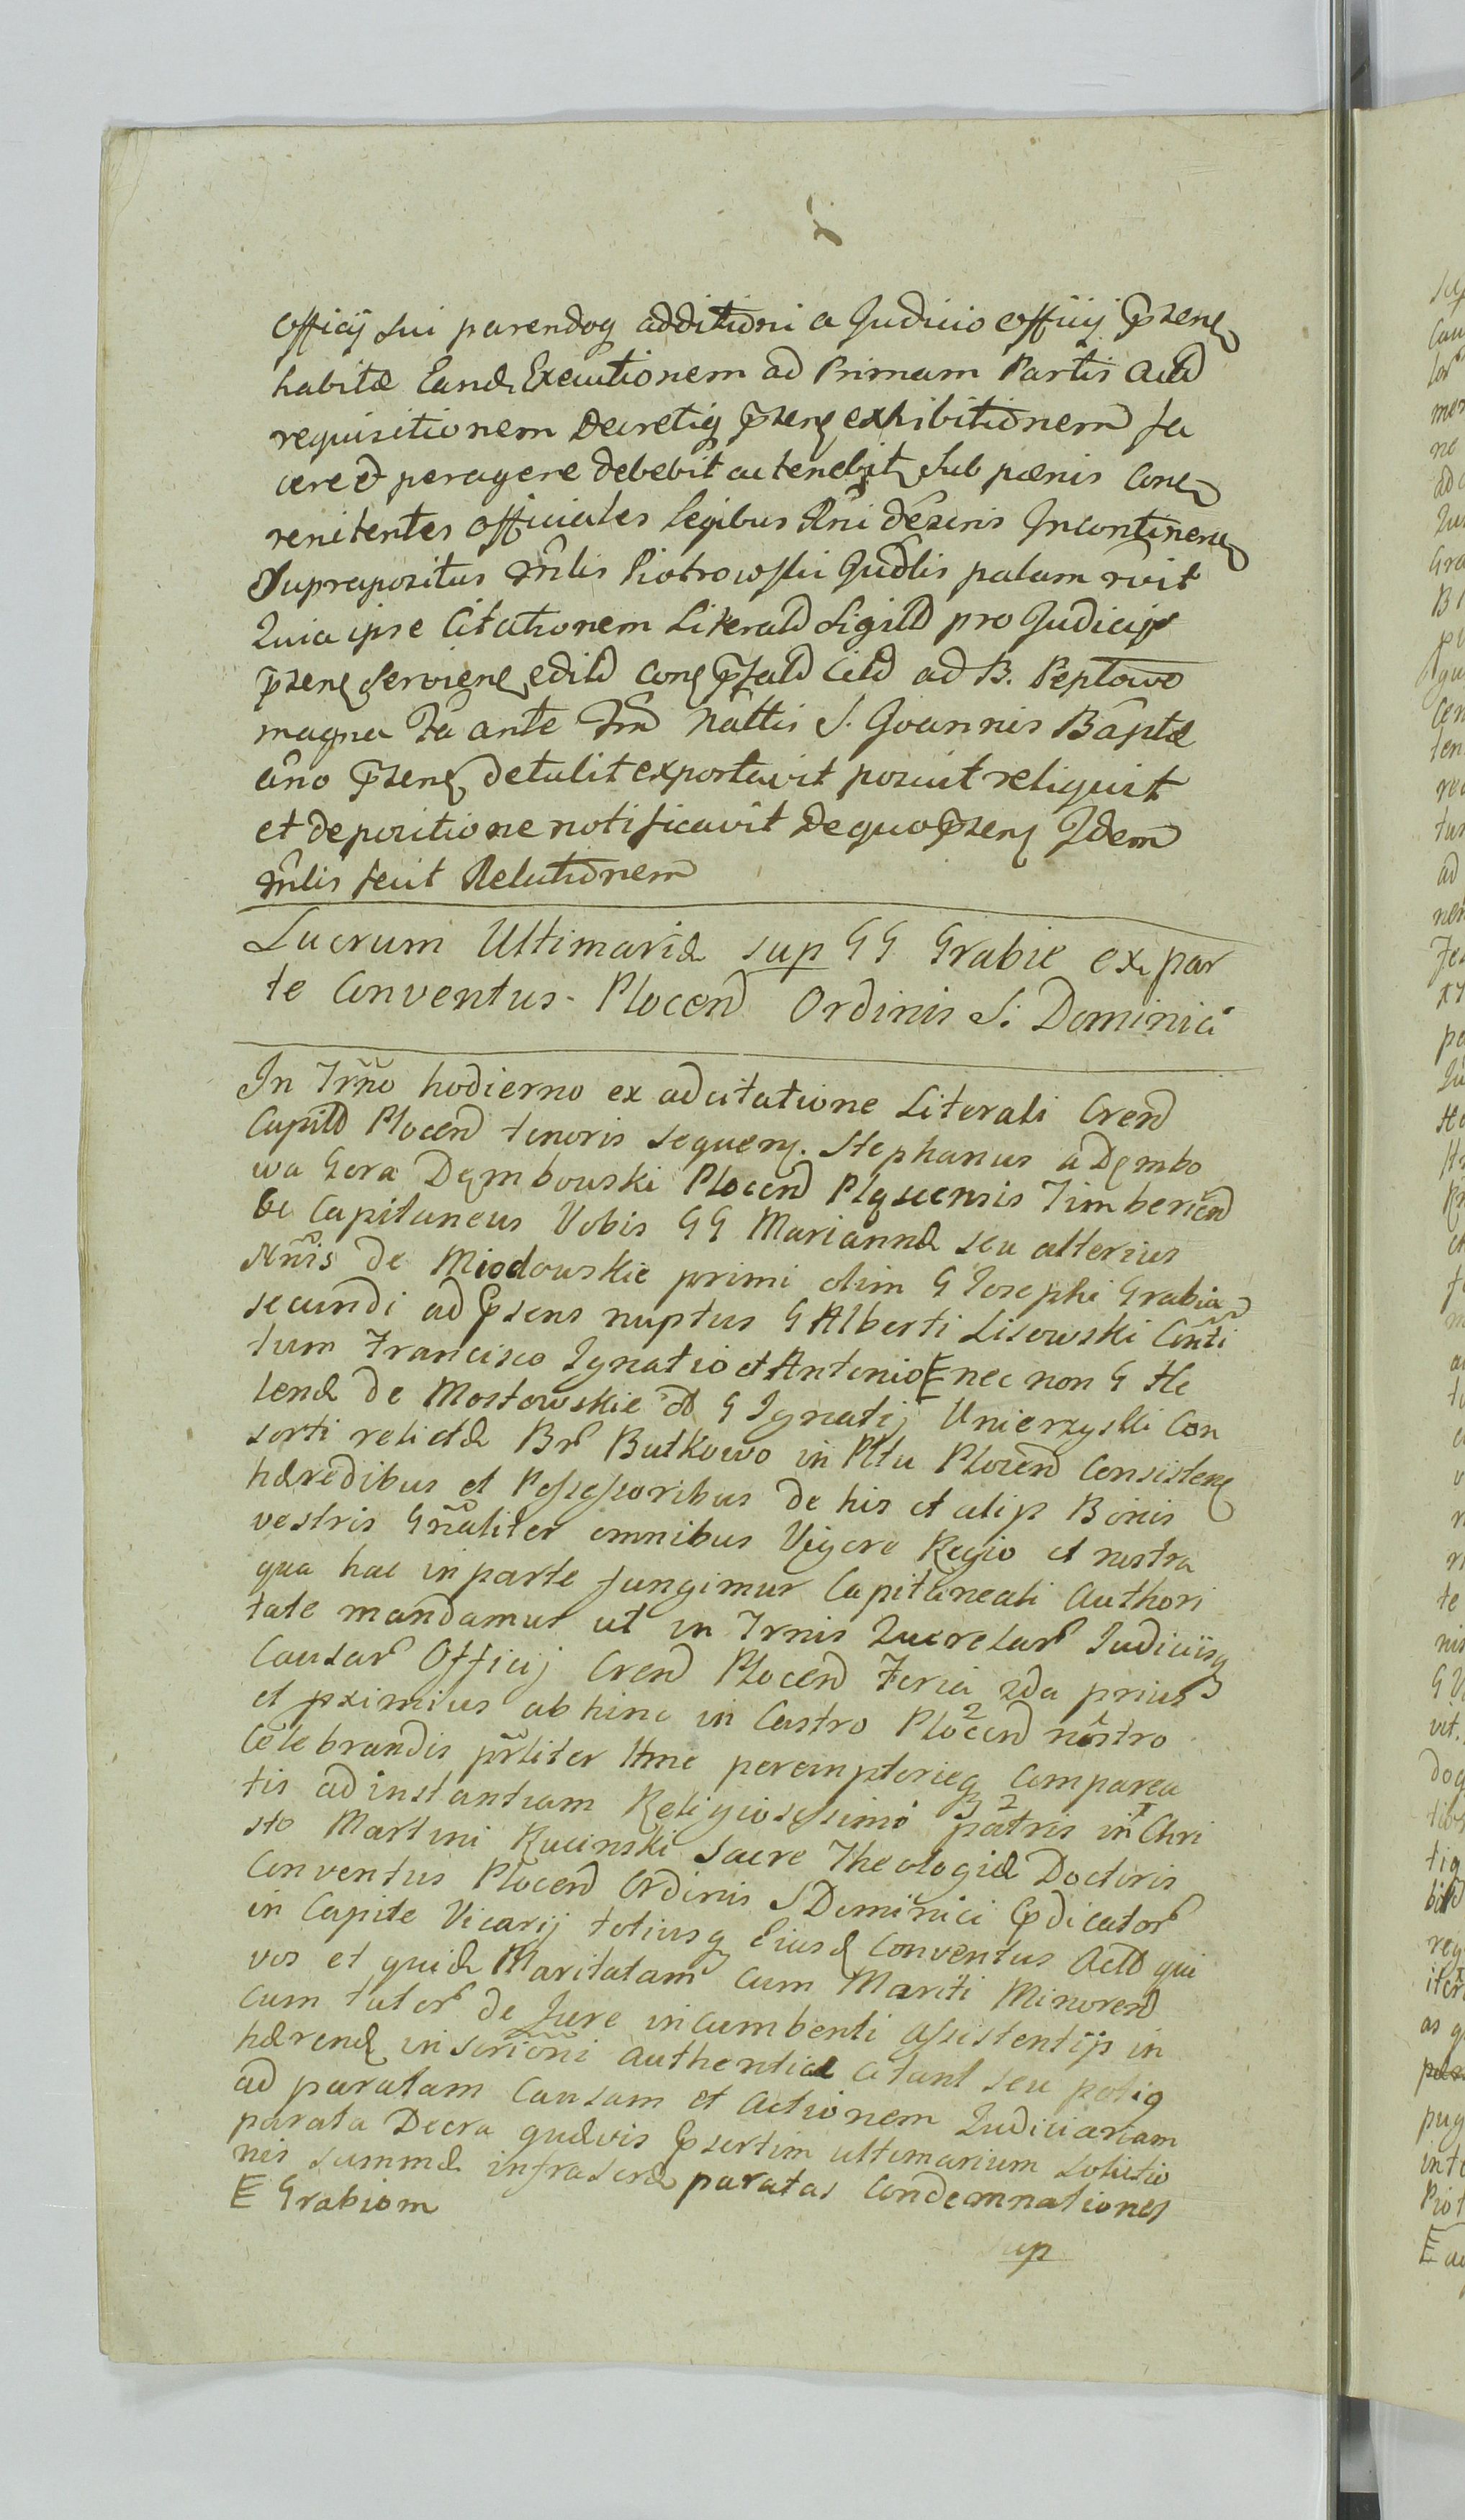 Officij sui parendoq additioni a Judicio officij Psenq
habitæ Eand Executionem ad Primam Partis Actt
requisitionem Decretiq psenq exhibitionem fa
cere et peragere debebit ac tenebit sub pænis Con
renitentes Officiales legibus Rni descris Incontinen
Supra positus Mlis Piotrowski Judlis palam rvit
Quia ipse Citationem Literalt Sigilt pro Judicijs
psenq servienq edilt conq psalt Citt ad B. Peplowo
magna Fa ante Fm Nattis S. Joannis Baptæ
ano psenq detulit exportavit posuit reliquit
et depositione notificavit de quo psenq Idem
Mlis fecit Relationem
Lucrum Ultimariæ sup GG Grabie ex par
te Conventus Plocen Ordinis S. Dominici
In Trno hodierno ex adcitatione Literali Cren
Capitt Plocen tenoris sequenq. Stephanus a Dembo
wa Gora Dembowski Plocen Plqscensis Timberien
Capitaneus Vobis GG Mariannæ seu alterius
Nnis de Miodouskie primi olim G Josephi Grabia
secundi ad Psens nuptus G Alberti Lisowski Conti
tum Francisco Ignatio et Antonio E nec non G He
lenæ de Mostowskie G Ignatij Unierzyski Con
sorti relictæ Br Butkowo in Pttu Plocen Consistenq
hæredibus et Possessoribus de his et alijs Bonis
vestris Gnaliter omnibus Vigore Regio et nostra
qua hac in parte fungimur Capitaneali Authori
tate mandamus ut in Trnis Querelar Judicijsq
Causar Officij Cren Plocen Feria 2da prius
et pximius ab hinc in Castro Plocen nostro
Celebrandis prliter ttme peremptorieq Comparea
tis ad instantiam Religiosissimi patris in Chri
sto Martini Rucinski Sacre Theologiæ Doctoris
Conventus Plocen Ordinis S Dominici Pdicator
in Capite Vicarij totiusq Eiusd Conventus Actt qui
vos et quid Maritatam cum Mariti Minoren
cum tutor de Jure incumbenti Assistentijs in
hærend inscrioni authenticæ Citant seu potiq
ad paratam Causam et Actionem Judiciariam
parata Decra quævis Psertim ultimarium solutio
nis summæ infrascræ paratas Condemnationes
E Grabiom
sup